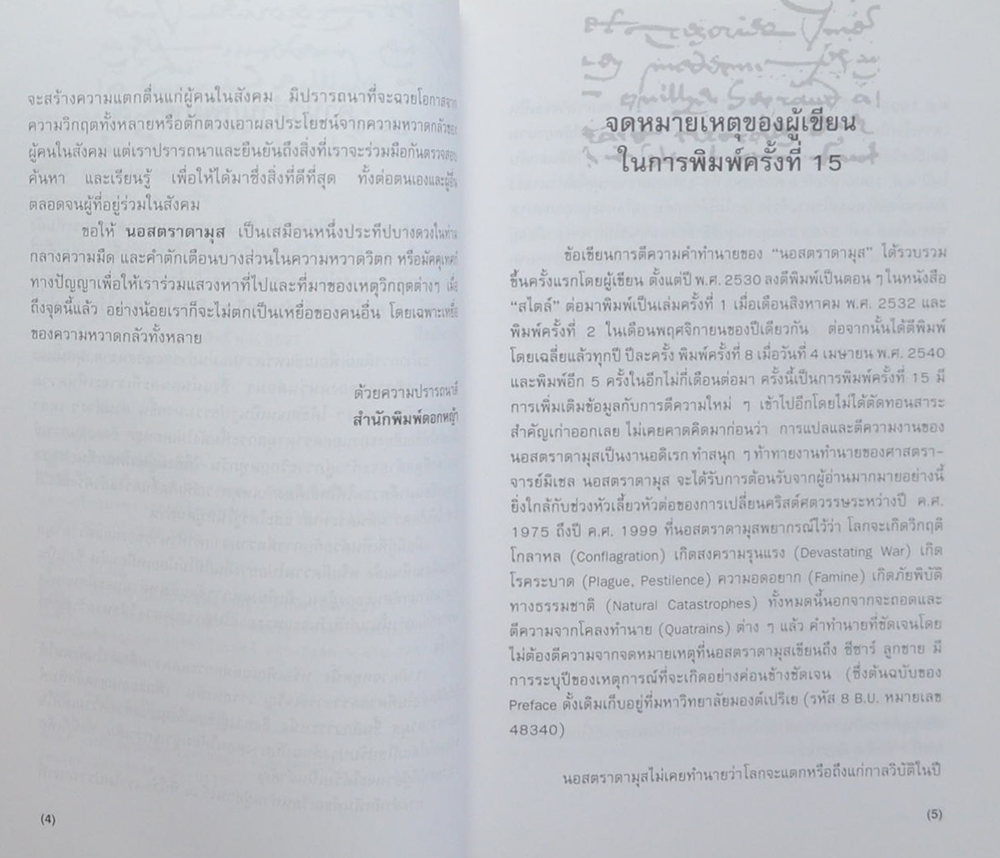 จะสร้างความแตกตื่นแก่ผู้คนในสังคม มีปรารถนาที่จะฉวยโอกาสจาก
ความวิกฤตทั้งหลายหรือตักตวงเอาผลประโยชน์จากความหวาดกลัวของ
ผู้คนในสังคม แต่เราปรารถนาและยืนยันถึงสิ่งที่เราจะร่วมมือกันตรวจสอบ
ค้นหา และเรียนรู้ เพื่อให้ได้มาซึ่งสิ่งที่ดีที่สุด ทั้งต่อตนเองและผู้อื่น
ตลอดจนผู้ที่อยู่ร่วมในสังคม
ขอให้ นอสตราดามุส เป็นเสมือนหนึ่งประทีปบางดวงในท่าม
กลางความมืด และคำตักเตือนบางส่วนในความหวาดวิตก หรือมัคคุเทศก์
ทางปัญญาเพื่อให้เราร่วมแสวงหาที่ไปและที่มาของเหตุวิกฤตต่างๆ เมื่อ
ถึงจุดนี้แล้ว อย่างน้อยเราก็จะไม่ตกเป็นเหยื่อของคนอื่น โดยเฉพาะเหยื่อ
ของความหวาดกลัวทั้งหลาย
ด้วยความปรารถนาดี
สำนักพิมพ์ดอกหญ้า
(4)
จดหมายเหตุของผู้เขียน
ในการพิมพ์ครั้งที่ 15
ข้อเขียนการตีความคำทำนายของ “นอสตราดามุส” ได้รวบรวม
ขึ้นครั้งแรกโดยผู้เขียน ตั้งแต่ปี พ.ศ. 2530 ลงตีพิมพ์เป็นตอน ๆ ในหนังสือ
“สไตล์” ต่อมาพิมพ์เป็นเล่มครั้งที่ 1 เมื่อเดือนสิงหาคม พ.ศ. 2532 และ
พิมพ์ครั้งที่ 2 ในเดือนพฤศจิกายนของปีเดียวกัน ต่อจากนั้นได้ตีพิมพ์
โดยเฉลี่ยแล้วทุกปี ปีละครั้ง พิมพ์ครั้งที่ 8 เมื่อวันที่ 4 เมษายน พ.ศ. 2540
และพิมพ์อีก 5 ครั้งในอีกไม่กี่เดือนต่อมา ครั้งนี้เป็นการพิมพ์ครั้งที่ 15 มี
การเพิ่มเติมข้อมูลกับการตีความใหม่ ๆ เข้าไปอีกโดยไม่ได้ตัดทอนสาระ
สำคัญเก่าออกเลย ไม่เคยคาดคิดมาก่อนว่า การแปลและตีความงานของ
นอสตราดามุสเป็นงานอดิเรก ทำสนุก ๆ ท้าทายงานทำนายของศาสตรา-
จารย์มิเชล นอสตราดามุส จะได้รับการต้อนรับจากผู้อ่านมากมายอย่างนี้
ยิ่งใกล้กับช่วงหัวเลี้ยวหัวต่อของการเปลี่ยนคริสต์ศตวรรษระหว่างปี ค.ศ.
1975 ถึงปี ค.ศ. 1999 ที่นอสตราดามุสพยากรณ์ไว้ว่า โลกจะเกิดวิกฤติ
โกลาหล (Conflagration) เกิดสงครามรุนแรง (Devastating War) เกิด
โรคระบาด (Plague, Pestilence) ความอดอยาก (Famine) เกิดภัยพิบัติ
ทางธรรมชาติ (Natural Catastrophes) ทั้งหมดนี้นอกจากจะถอดและ
ตีความจากโคลงทำนาย (Quatrains) ต่าง ๆ แล้ว คำทำนายที่ชัดเจนโดย
ไม่ต้องตีความจากจดหมายเหตุที่นอสตราดามุสเขียนถึง ซีซาร์ ลูกชาย มี
การระบุปีของเหตุการณ์ที่จะเกิดอย่างค่อนข้างชัดเจน (ซึ่งต้นฉบับของ
Preface ดั้งเดิมเก็บอยู่ที่มหาวิทยาลัยมองต์เปริเย (รหัส 8 B.U. หมายเลข
48340)
นอสตราดามุสไม่เคยทำนายว่าโลกจะแตกหรือถึงแก่กาลวิบัติในปี
(5)